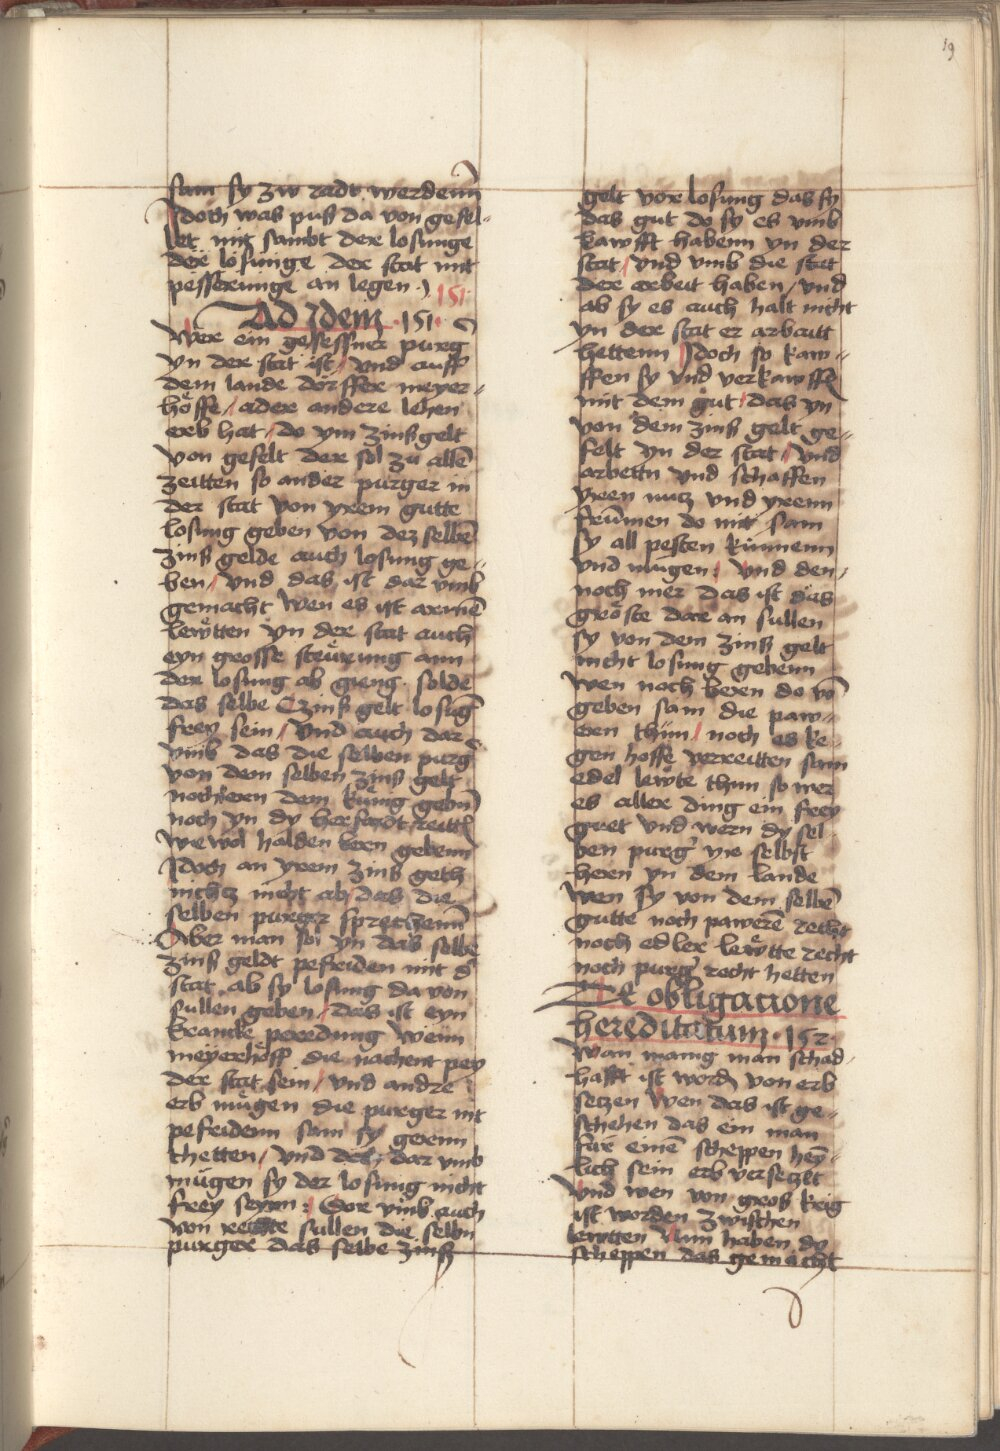 19
sam sy zw radt werdenn
Idoch was puß da von gefel-
let mit sambt der losunge
der losunge der stat mit
pesserunge an legen
151
Ad Idem 151
Wer ein gesessner purg
yn der stat ist / vnd auff
dem lande dorffer meyer-
höffe / ader andere lehen
erb hat / do ym zinß gelt
von gefelt der sol zu allē
zeitten so ander purger in
der stat von yrem gutte
losung geben von dez selbē
zinß gelde auch losung ge-
ben / vnd das ist dar vmb
gemacht wen es ist armē
lewtten yn der stat auch
eyn grosse stewrung ann
der losung ab gieng solde
das selbe Czinß gelt losūg
frey sein / vnd auch dar
vmb das die selben purg
von dem selben zinß gelt
noch eren dem kunig gebn
noch yn dy herfardt reittē
wie wol halden heren gebenn
Idoch an yrem zinß geth
nichtz nicht ab / das die
selben purger sprechenn
Aber man sol yn das selbe
zinß geldt pefriden mit d'
stat ab sy losung da von
sullen geben / das ist eyn
krancke peredung wenn
meyerhöff die nachent pey
der stat sein / vnd andre
erb mugen die purger nit
pefridenn sam sy gerenn
thetten / vnd doch dar vmb
mugen sy der losung nicht
frey seynn : Dor vmb auch
von rechte sullen die selbn
purger das selbe zinß
gelt vor losung das sy
das gut do sy es vmb
kawfft habenn yn der
stat / vnd vmb die stat
der erbeit haben / vnd
ab sy es auch halt nicht
yn der stat er arbaitt
hettenn Idoch so kaw-
ffen sy vnd verkawffē
mit dem gut / das yn
von dem zinß gelt ge-
felt yn der stat / vnd
arbettn vnd schaffen
yren nutz vnd yrenn
frumen do mit sam
sy all pesten kunnenn
vnd mugen : vnd den-
noch mer das ist das
gröste dar an sullen
sy von dem zinß gelt
nicht losung gebenn
wen noch heren do vō
geben sam die paw-
ren thun / noch es ke-
gen hoffe verreitten sam
edel lewte thun so wer
es aller ding ein frey
guet vnd wern dy sel-
ben purg' yre selbst
heren yn dem lande
wen sy von dem selbē
gutte noch pawerē recht
noch edler lewtte recht
noch purg' recht hetten
De obligacione
hereditatum 152
Wan manig man schad-
hafft ist word von erb
setzen wen das ist ge-
schehen das ein man
fur einē scheppen hey-
lich sein erb versetzt
vnd wen von gros krig
ist worden zwischen
lewtten Nun haben dy
scheppen das gemacht